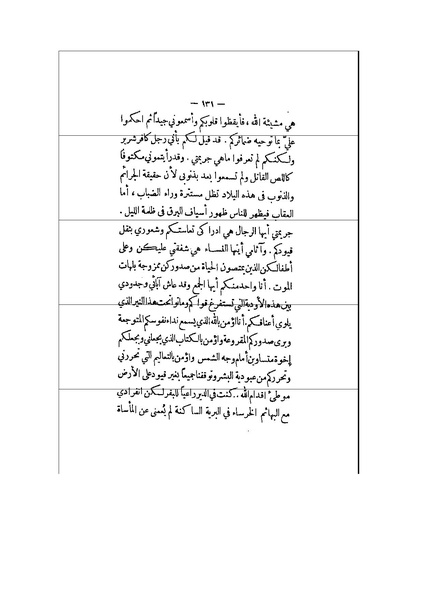 — ١٣١ —
هي مشيئة الله ، فأيقظوا قلوبكم وأسمعوني جيداً ثم احكموا
عليّ بما توحيه ضمائركم . قد قيل لكم بأني رجل كافر شرير
ولكنكم لم تعرفوا ما هي جريمتي . وقد رأيتموني مكتوفا
كاللص القاتل ولم تسمعوا بعد بذنوبي لأن حقيقة الجرائم
والذنوب في هذه البلاد تظل مستترة وراء الضباب ، أما
العقاب فيظهر للناس ظهور أسياف البرق في ظلمة الليل .
جريمتي أيها الرجال هي ادراكي تعاستكم وشعوري بثقل
قيودكم . وآثامي أيتها النساء هي شفقتي عليكن وعلى
أطفالكن الذين يمتصون الحياة من صدوركن ممزوجة بلهاث
الموت . أنا واحد منكم أيها الجمع وقد عاش آبائي وجدودي
بين هذه الأودية التي تستفرغ قواكم وماتوا تحت هذا النير الذي
يلوي أعناقكم . أنا اؤمن بالله الذي يسمع نداء نفوسكم المتوجعة
ويرى صدوركم المقروعة واؤمن بالكتاب الذي يجعلني ويجعلكم
إخوة متساوين أمام وجه الشمس واؤمن بالتعاليم التي تحررني
وتحرركم من عبودية البشر وتوقفنا جميعاً بغير قيود على الأرض
موطئ أقدام الله .. كنت في الدير راعياً للبقر لكن انفرادي
مع البهائم الخرساء في البرية الساكنة لم يُعمني عن المأساة